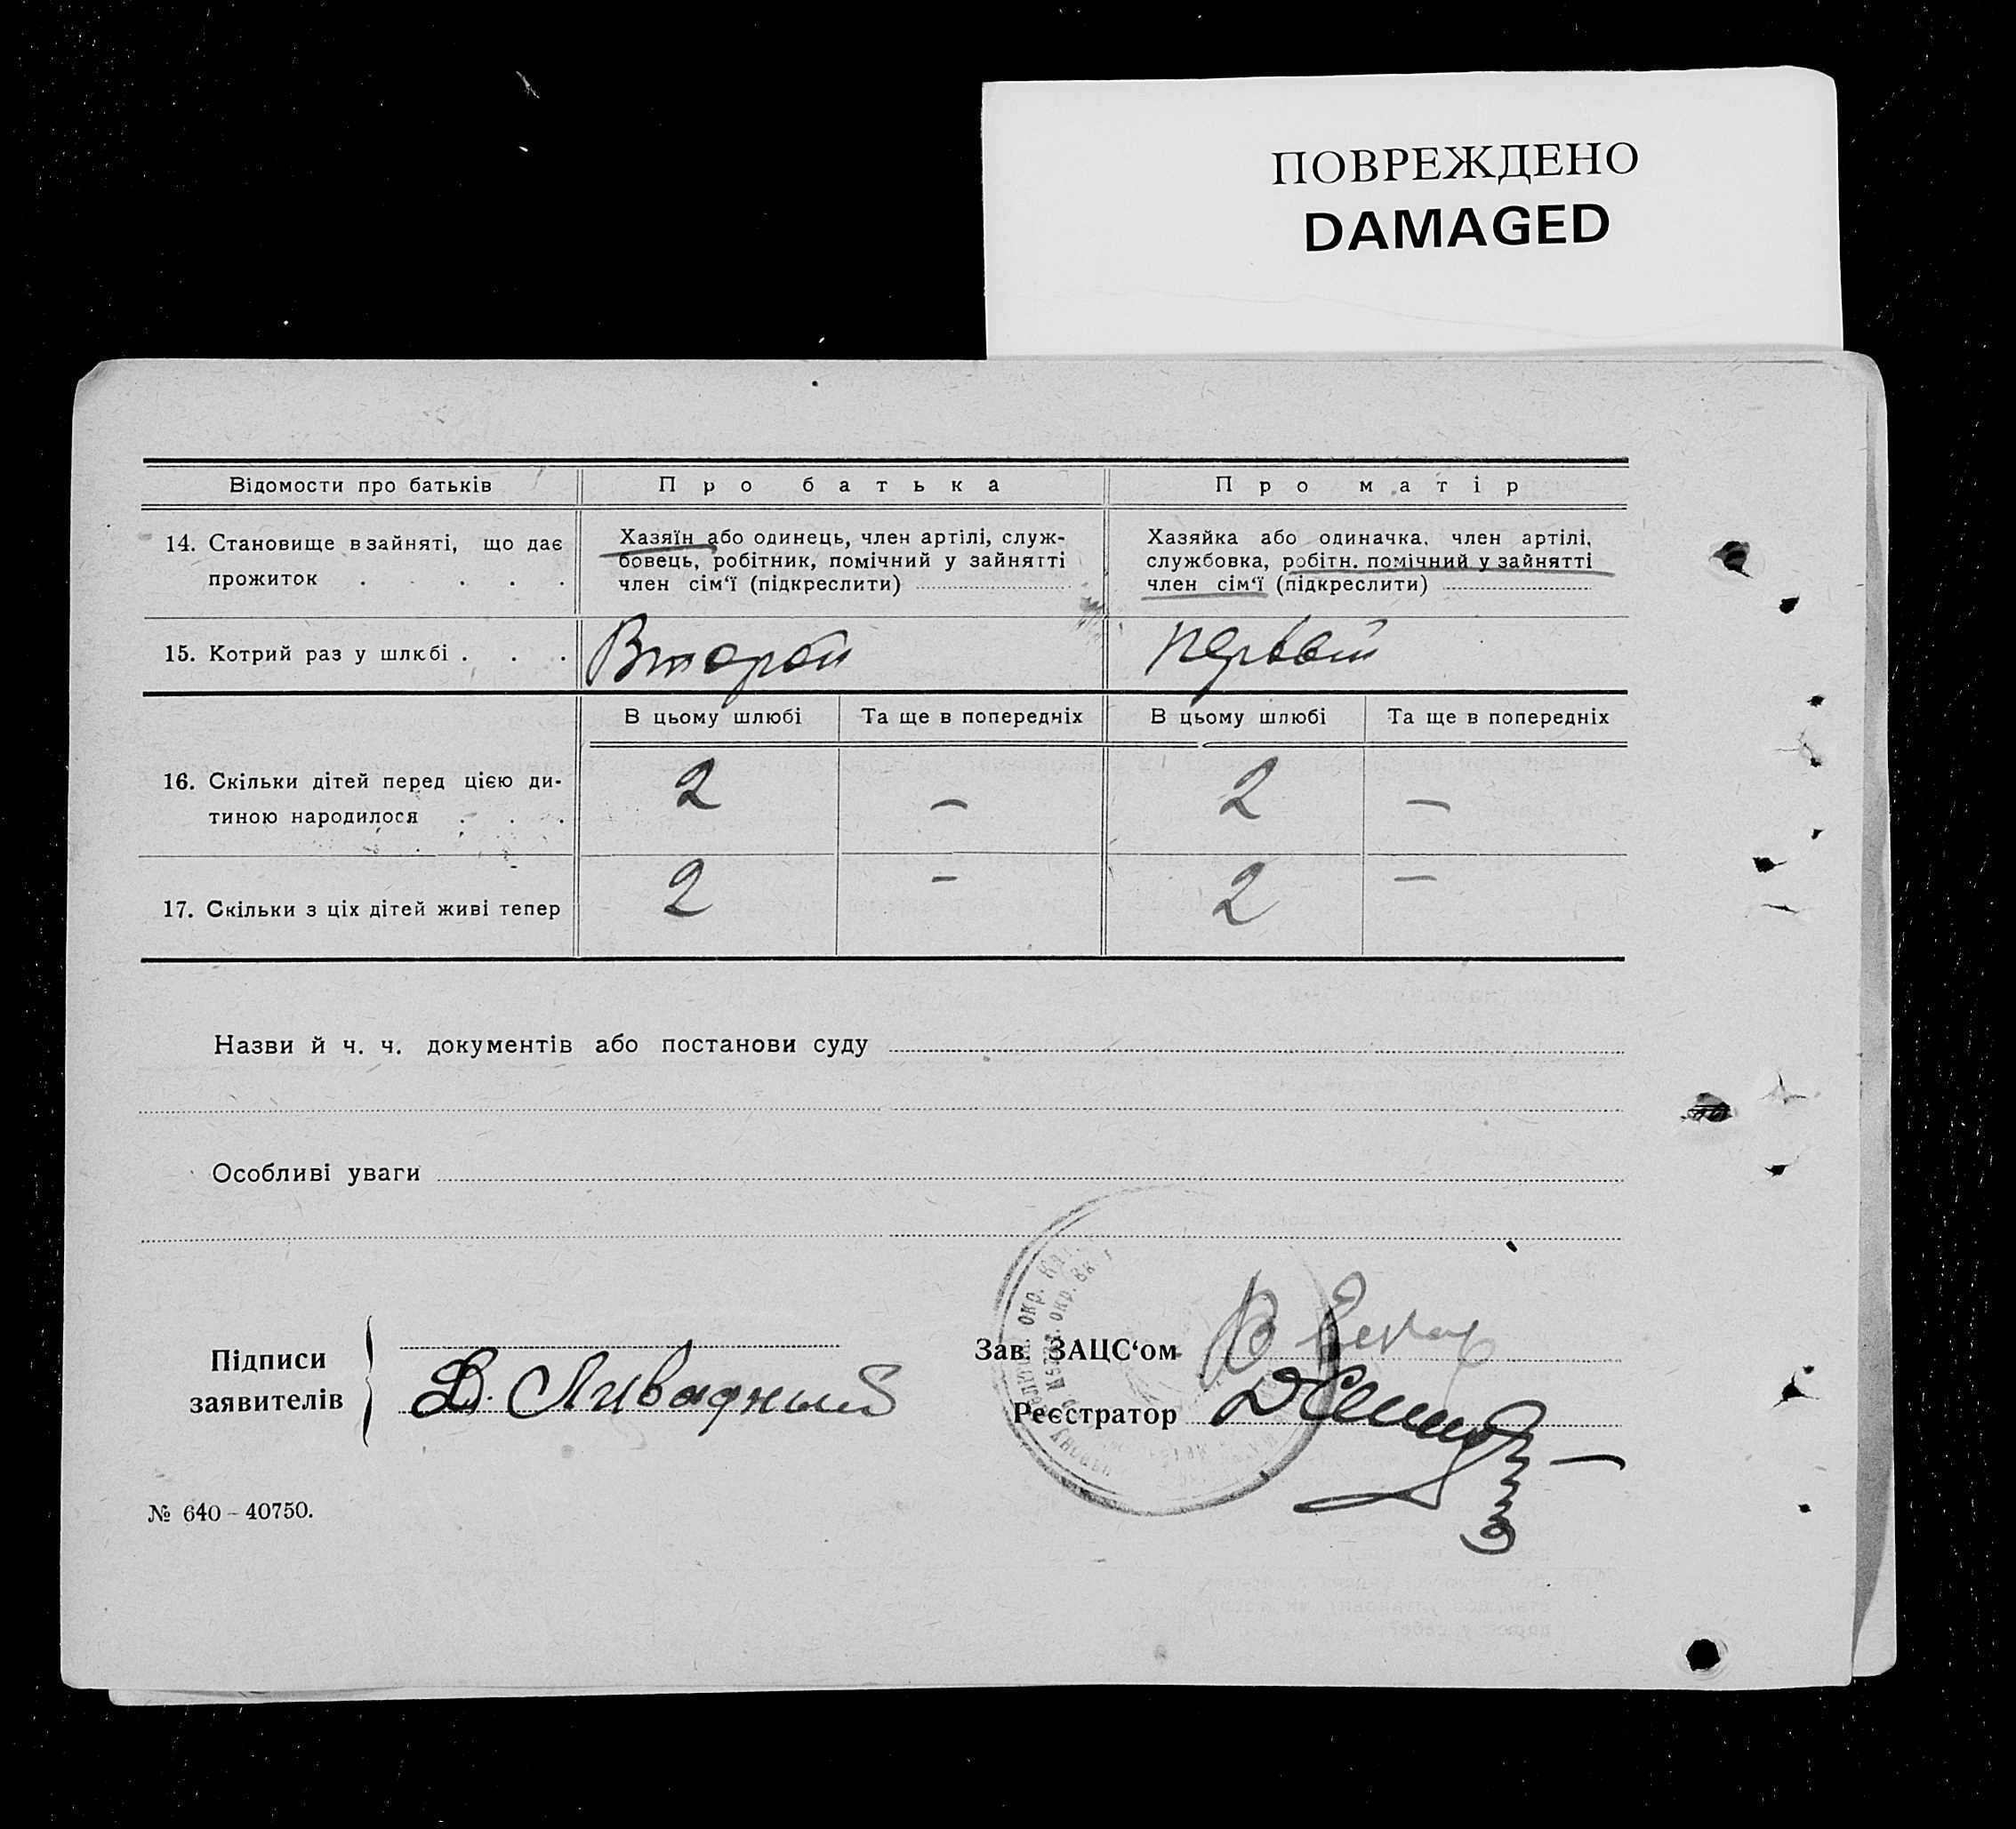 ПОВРЕЖДЕНО
DAMAGED
Відомости про батьків
Про батька
Про матір
14. Становище в зайняті, що дає
прожиток . . . .
Хазяїн або одинець, член артілі, служ-
бовець, робітник, помічний у зайнятті
член сім'ї (підкреслити)
Хазяйка або одиначка, член артілі,
службовка, робітн. помічний у зайнятті
член сім'ї (підкреслити)
15. Котрий раз у шлюбі . . .
Второй
первый
В цьому шлюбі
Та ще в попередніх
В цьому шлюбі
Та ще в попередніх
16. Скільки дітей перед цією ди-
тиною народилося . . .
2
—
2
—
17. Скільки з ціх дітей живі тепер
2
—
2
—
Назви й ч. ч. документів або постанови суду
Особливі уваги
Підписи
заявителів
Д. Ливадный
Зав. ЗАЦС‘ом
Реєстратор
№ 640 – 40750.